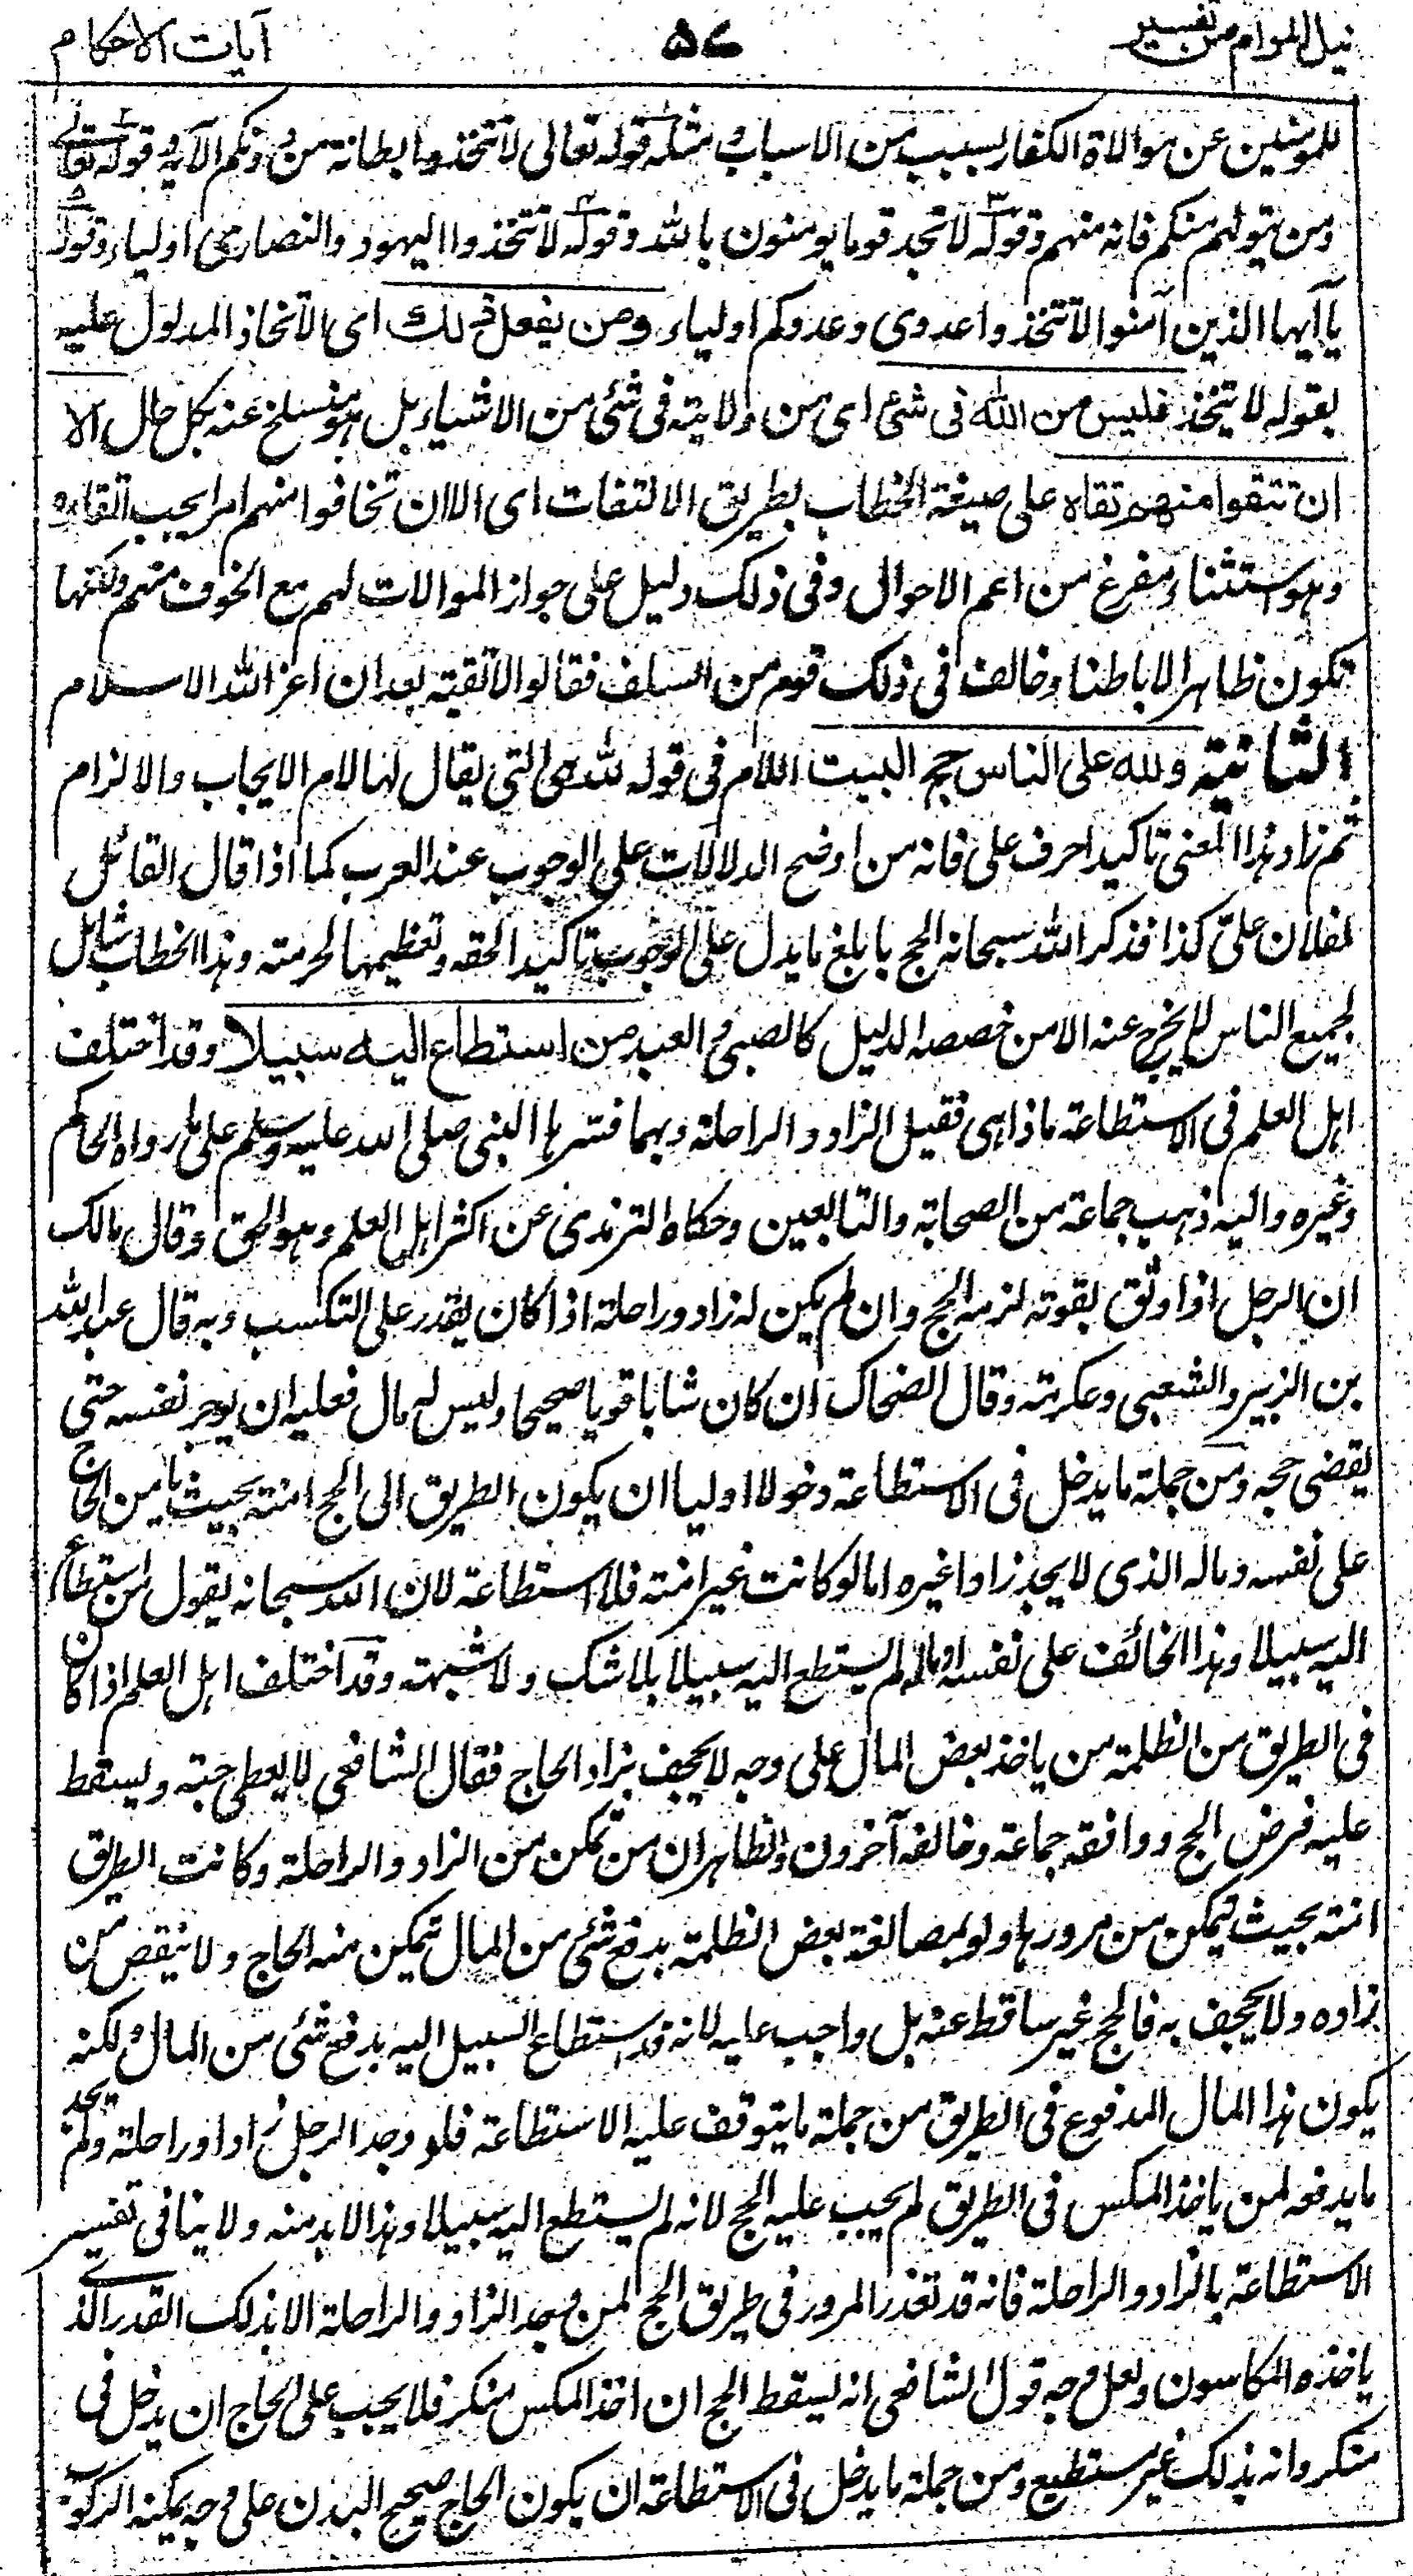 نيل المرام من تفسير ۵۷ آيات الاحكام
للمومنين عن موالاة الكفار بسبب من الاسباب ومثله قوله تعالى لا تتخذوا بطانة من دونكم الآية وقوله تعالى
ومن يتولهم منكم فانه منهم وقوله لا تجد قوما يومنون بالله وقوله لا تتخذوا اليهود والنصارى اولياء وقوله
يا ايها الذين آمنوا لا تتخذوا عدوى وعدوكم اولياء ومن يفعل ذلك اى الاتخاذ المدلول عليه
بقوله لا يتخذ فليس من الله فى شئ اى من ولايته فى شئ من الاشياء بل هو منسلخ عنه بكل حال الا
ان تتقوا منهم تقاه على صيغة الخطاب بطريق الالتفات اى الا ان تخافوا منهم امرا يجب اتقاءه
وهو استثناء مفرغ من اعم الاحوال وفى ذلك دليل على جواز الموالات لهم مع الخوف منهم ولكنها
تكون ظاهرا لا باطنا وخالف فى ذلك قوم من السلف فقالوا لا تقية بعد ان اعز الله الاسلام
الثانية ولله على الناس حج البيت اللام فى قوله لله هى التى يقال لها لام الايجاب والالزام
ثم زاد هذا المعنى تاكيدا حرف على فانه من اوضح الدلالات على الوجوب عند العرب كما اذا قال القائل
لفلان علىّ كذا فذكر الله سبحانه الحج بابلغ ما يدل على الوجوب تاكيدا لحقه وتعظيمها لحرمته وهذا الخطاب شامل
لجميع الناس لا يخرج عنه الا من خصصه الدليل كالصبى والعبد من استطاع اليه سبيلا وقد اختلف
اهل العلم فى الاستطاعة ماذا هى فقيل الزاد والراحلة وبهما فسرها النبى صلى الله عليه وسلم على ما رواه الحاكم
وغيره واليه ذهب جماعة من الصحابة والتابعين وحكاه الترمذى عن اكثر اهل العلم وهو الحق وقال مالك
ان الرجل اذا وثق بقوته لزمه الحج وان لم يكن له زاد وراحلة اذا كان يقدر على التكسب وبه قال عبد الله
بن الزبير والشعبى وعكرمة وقال الضحاك ان كان شابا قويا صحيحا وليس له مال فعليه ان يوجر نفسه حتى
يقضى حجه ومن جملة ما يدخل فى الاستطاعة دخولا اوليا ان يكون الطريق الى الحج امنة بحيث يامن الحاج
على نفسه وماله الذى لا يجد زادا غيره اما لو كانت غير امنة فلا استطاعة لان الله سبحانه يقول من استطاع
اليه سبيلا وهذا الخائف على نفسه او ماله لم يستطع اليه سبيلا بلا شك ولا شبهة وقد اختلف اهل العلم اذا كان
فى الطريق من الظلمة من ياخذ بعض المال على وجه لا يجحف بزاد الحاج فقال الشافعى لا يعطى حبة ويسقط
عليه فرض الحج ووافقه جماعة وخالفه آخرون والظاهر ان من تمكن من الزاد والراحلة وكانت الطريق
امنة بحيث يتمكن من مرورها ولو بمصانعة بعض الظلمة بدفع شئ من المال يتمكن منه الحاج ولا ينقص من
زاده ولا يجحف به فالحج غير ساقط عنه بل واجب عليه لانه قد استطاع السبيل اليه بدفع شئ من المال ولكنه
يكون هذا المال المدفوع فى الطريق من جملة ما يتوقف عليه الاستطاعة فلو وجد الرجل زادا وراحلة ولم يجد
ما يدفعه لمن ياخذ المكس فى الطريق لم يجب عليه الحج لانه لم يستطع اليه سبيلا وهذا لابد منه ولا ينافى تفسير
الاستطاعة بالزاد والراحلة فانه قد تعذر المرور فى طريق الحج لمن وجد الزاد والراحلة الا بذلك القدر الذى
ياخذه المكاسون ولعل وجه قول الشافعى انه يسقط الحج ان اخذ المكس منكر فلا يجب على الحاج ان يدخل فى
منكر وانه بذلك غير مستطيع ومن جملة ما يدخل فى الاستطاعة ان يكون الحاج صحيح البدن على وجه يمكنه الركوب